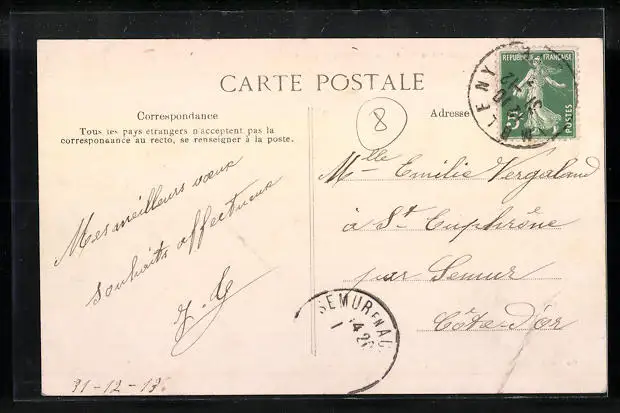 CARTE POSTALE
Correspondance
Tous les pays étrangers n'acceptent pas la
correspondance au recto, se renseigner à la poste.
Adresse
8
REPUBLIQUE FRANÇAISE
5c
POSTES
LENY
Mes meilleurs vœux
souhaits affectueux
31-12-13
Mlle Emilie Vergeland
à St Euphrône
par Semur
Côte-d'or
SEMUR EN AU